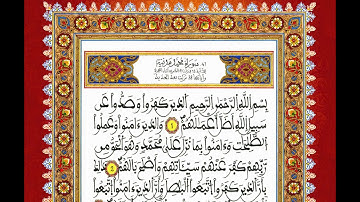 سورة محمد مدنية
بِسْمِ اللَّهِ الرَّحْمَٰنِ الرَّحِيمِ الَّذِينَ كَفَرُوا وَصَدُّوا عَن
سَبِيلِ اللَّهِ أَضَلَّ أَعْمَالَهُمْ ١ وَالَّذِينَ آمَنُوا وَعَمِلُوا
الصَّالِحَاتِ وَآمَنُوا بِمَا نُزِّلَ عَلَىٰ مُحَمَّدٍ وَهُوَ الْحَقُّ مِن
رَّبِّهِمْ كَفَّرَ عَنْهُمْ سَيِّئَاتِهِمْ وَأَصْلَحَ بَالَهُمْ ٢ ذَٰلِكَ
بِأَنَّ الَّذِينَ كَفَرُوا اتَّبَعُوا الْبَاطِلَ وَأَنَّ الَّذِينَ آمَنُوا اتَّبَعُوا